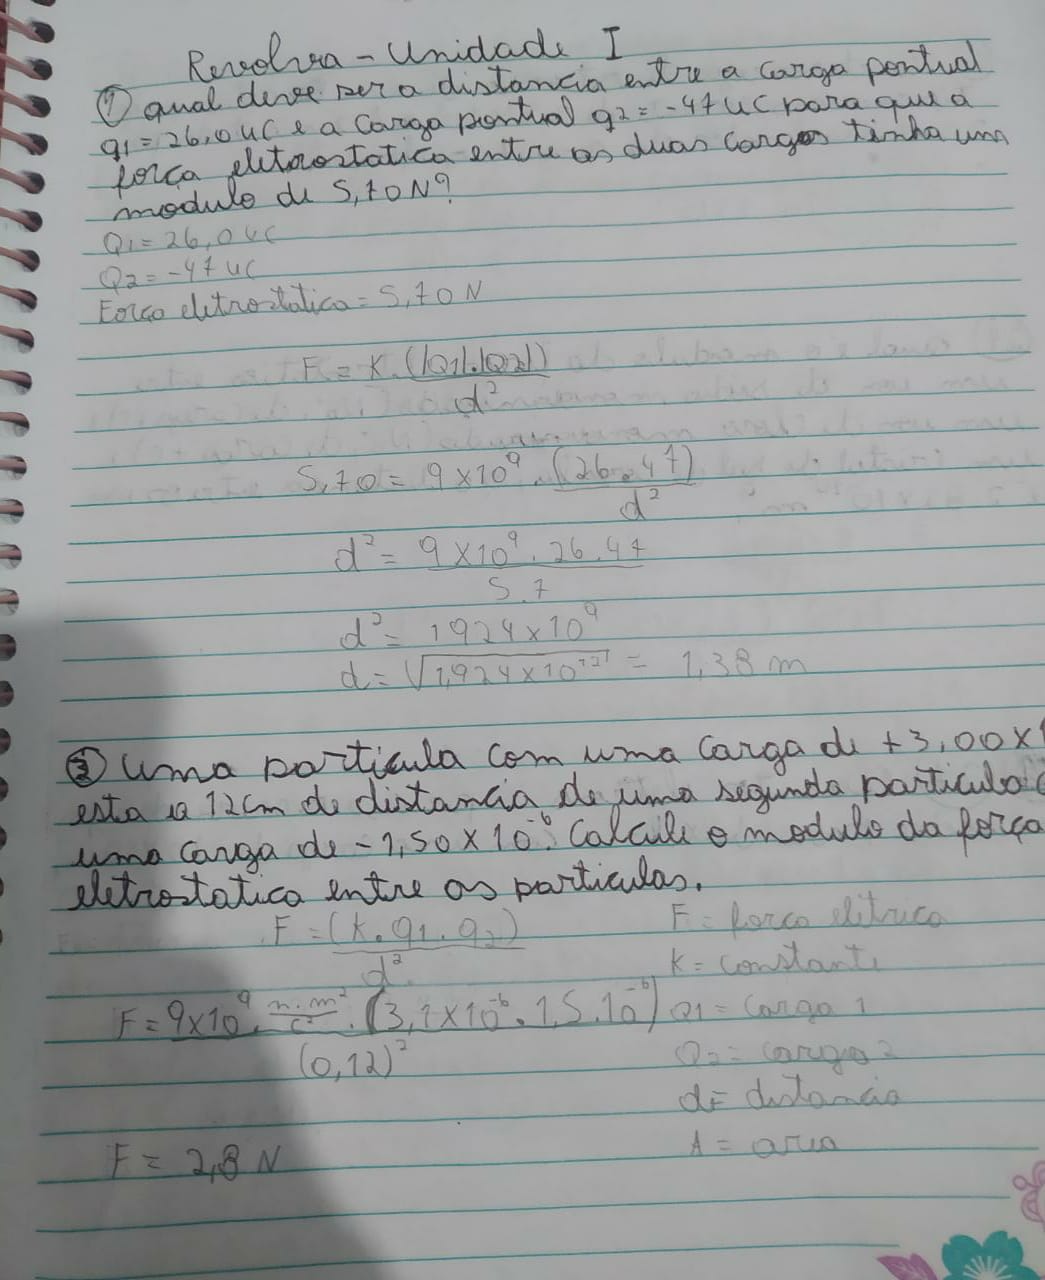 Revolva - Unidade I
① qual deve ser a distancia entre a carga pontual
q1 = 26,0 uC e a carga pontual q2 = -47 uC para que a
força eletrostatica entre as duas cargas tinha um
modulo de 5,70 N?
Q1 = 26,0 uC
Q2 = -47 uC
Força eletrostatica = 5,70 N
F = K. (|Q1|.|Q2|)
d²
5,70 = 9 x 10⁹ . (26.47)
d²
d² = 9 x 10⁹ . 26.47
5.7
d² = 1924 x 10⁹
d = √1,924 x 10 = 1,38 m
② uma particula com uma carga de +3,00 x
esta a 12 cm de distancia de uma segunda particula
uma carga de -1,50 x 10⁻⁶. Calcule o modulo da força
eletrostatica entre as particulas.
F = (K. q1. q2)
d²
F = força elitrica
K = constante
F = 9x10⁹. n.m²/c² . (3,1 x 10⁻⁶ . 1,5.10⁻⁶)
(0,12)²
Q1 = carga 1
Q2 = carga 2
d = distancia
A = area
F = 2,8 N